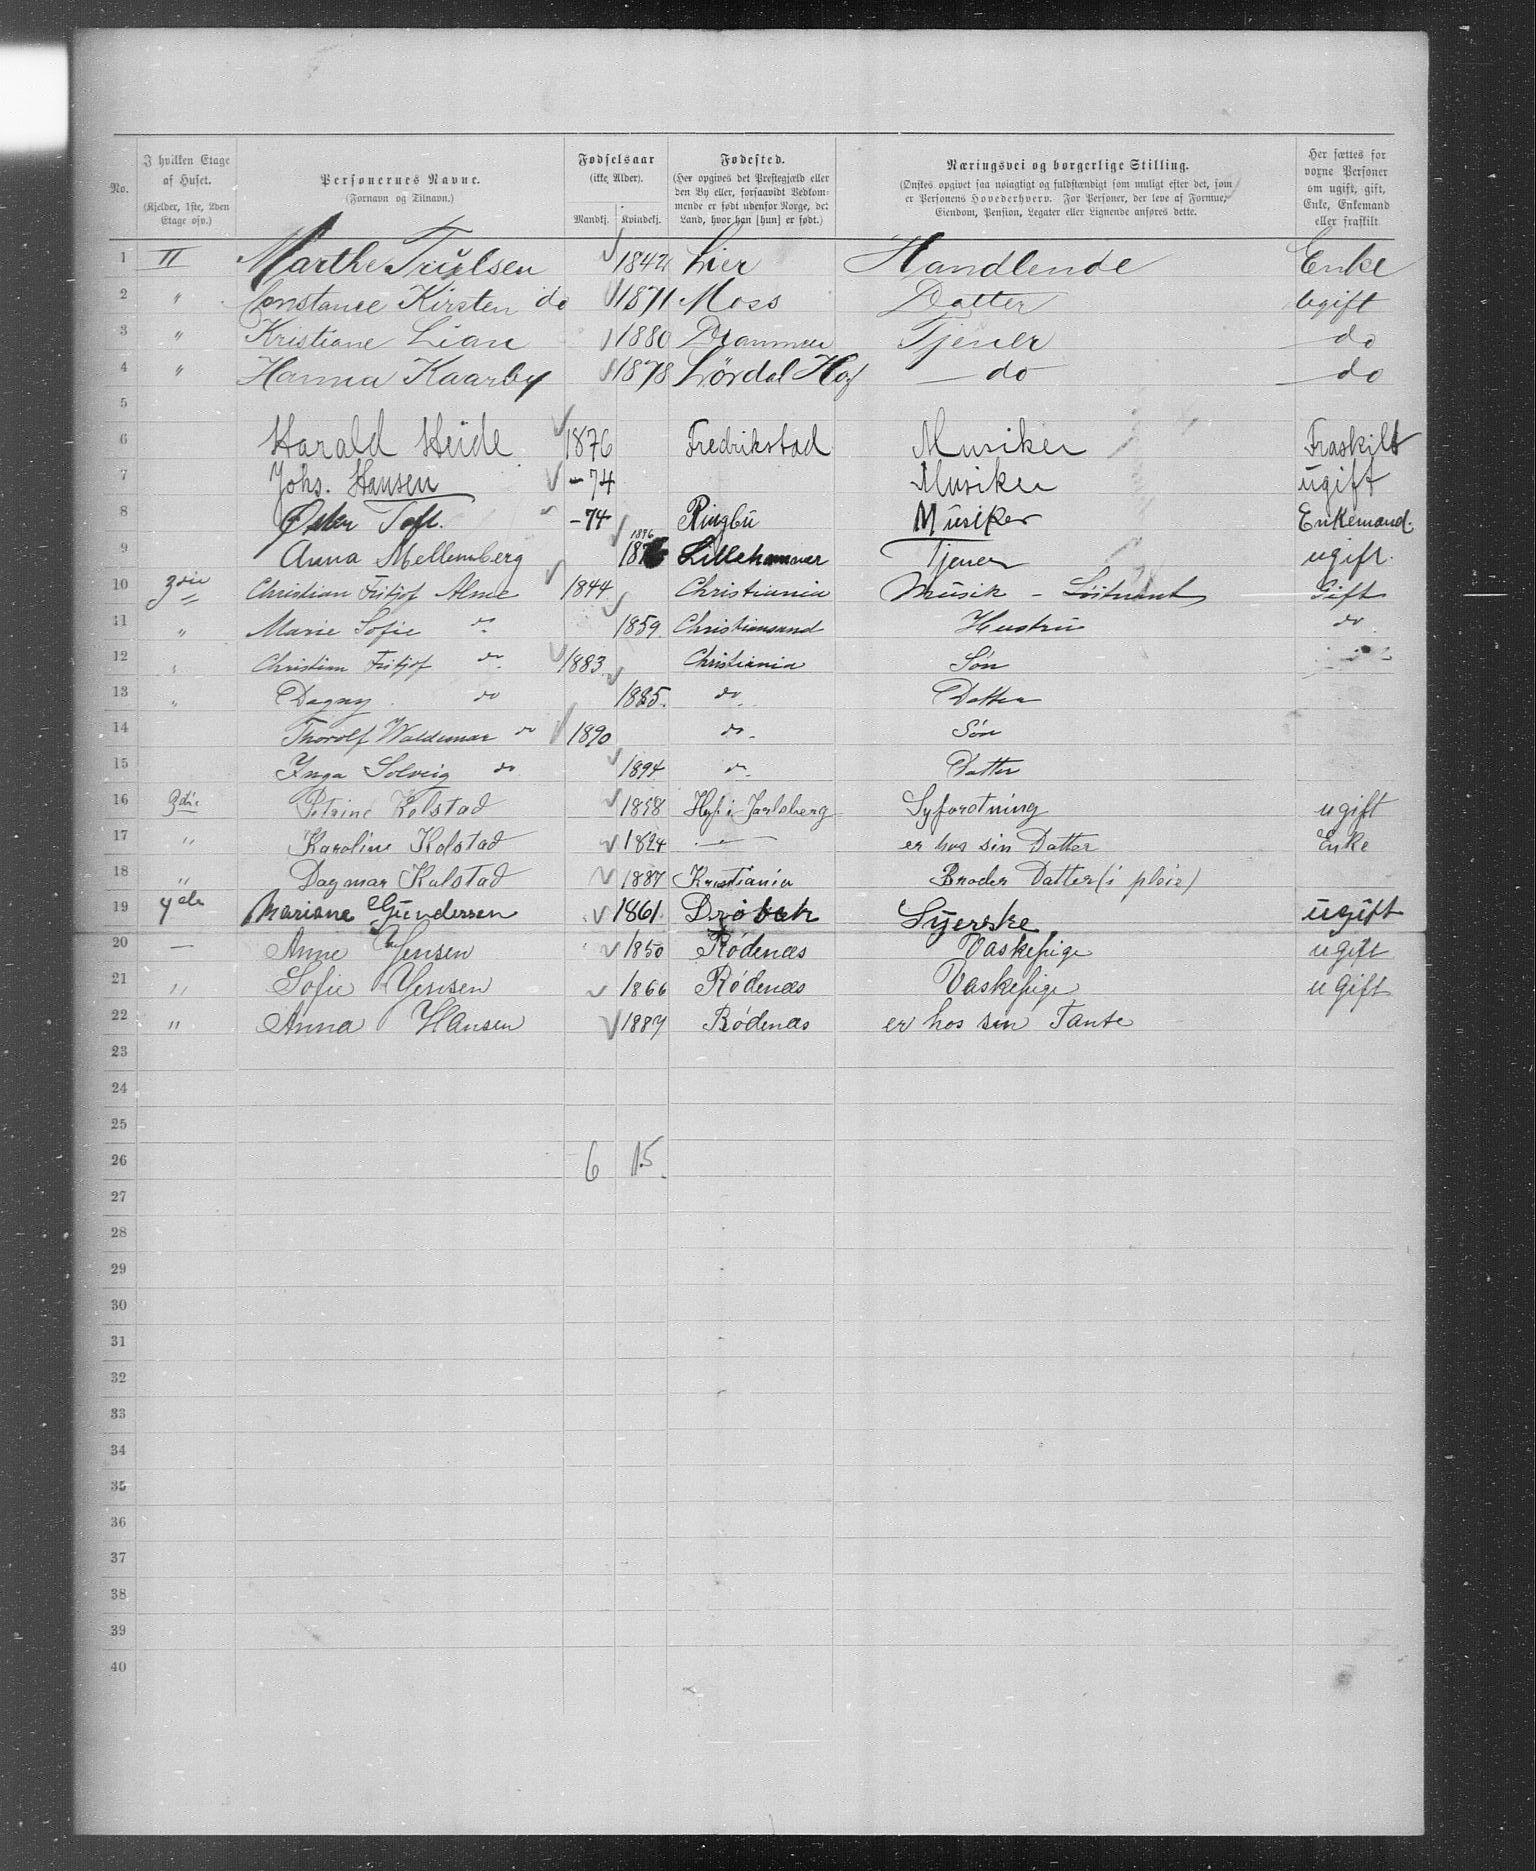 No.
I hvilken Etage af Huset. (Kjelder, 1ste, 2den Etage osv.)
Personernes Navne. (Fornavn og Tilnavn.)
Fødselsaar (ikke Alder). Mandkj. Kvindekj.
Fødested. (Her opgives det Prestegjæld eller den By eller, forsaavidt Vedkommende er født udenfor Norge, det Land, hvor han [hun] er født.)
Næringsvei og borgerlige Stilling. (Ønskes opgivet saa nøiagtigt og fuldstændigt som muligt efter det, som er Personens Hovederhverv. For Personer, der leve af Formue, Eiendom, Pension, Legater eller Lignende anføres dette.
Her sættes for voxne Personer om ugift, gift, Enke, Enkemand eller fraskilt
1 II Marthe Trulsen 1842 Lier Handlende Enke
2 " Constance Kirsten do 1871 Moss Datter Ugift
3 " Kristiane Lian 1880 Drammen Tjener do
4 " Hanna Kaarby 1878 Hof do do
5
6 Harald Heide 1876 Fredrikstad Musiker Fraskilt
7 Johs. Hansen -74 Musiker ugift
8 Toft. -74 Ringbu Musiker Enkemand.
9 Anna Mellemberg 1876 Lillehammer Tjener ugift.
10 3die Christian Fritjof Alme 1844 Christiania Musik - Löitnant Gift
11 " Marie Sofie do 1859. Christiansund Hustru do
12 " Christian Fritjof do 1883. Christiania Søn
13 " Dagny do 1885. do Datter
14 Thorolf Waldemar do 1890 do Søn
15 Inga Solveig do 1894 do Datter
16 3die Petrine Kolstad 1858 Hof i Jarlsberg Syforetning ugift
17 " Karoline Kolstad 1824 — er hos sin Datter Enke
18 " Dagmar Kolstad 1887 Kristiania Broder Datter (i pleie)
19 4de Mariane Gundersen 1861. Drøbak Syerske ugift
20 — Anne Jensen 1850 Rödenæs Vaskepige ugift
21 " Sofie Jensen 1866 Rödenæs Vaskepige ugift
22 " Anna Hansen 1887 Rödenæs er hos sin Tante
23
24
25
26 6 15.
27
28
29
30
31
32
33
34
35
36
37
38
39
40